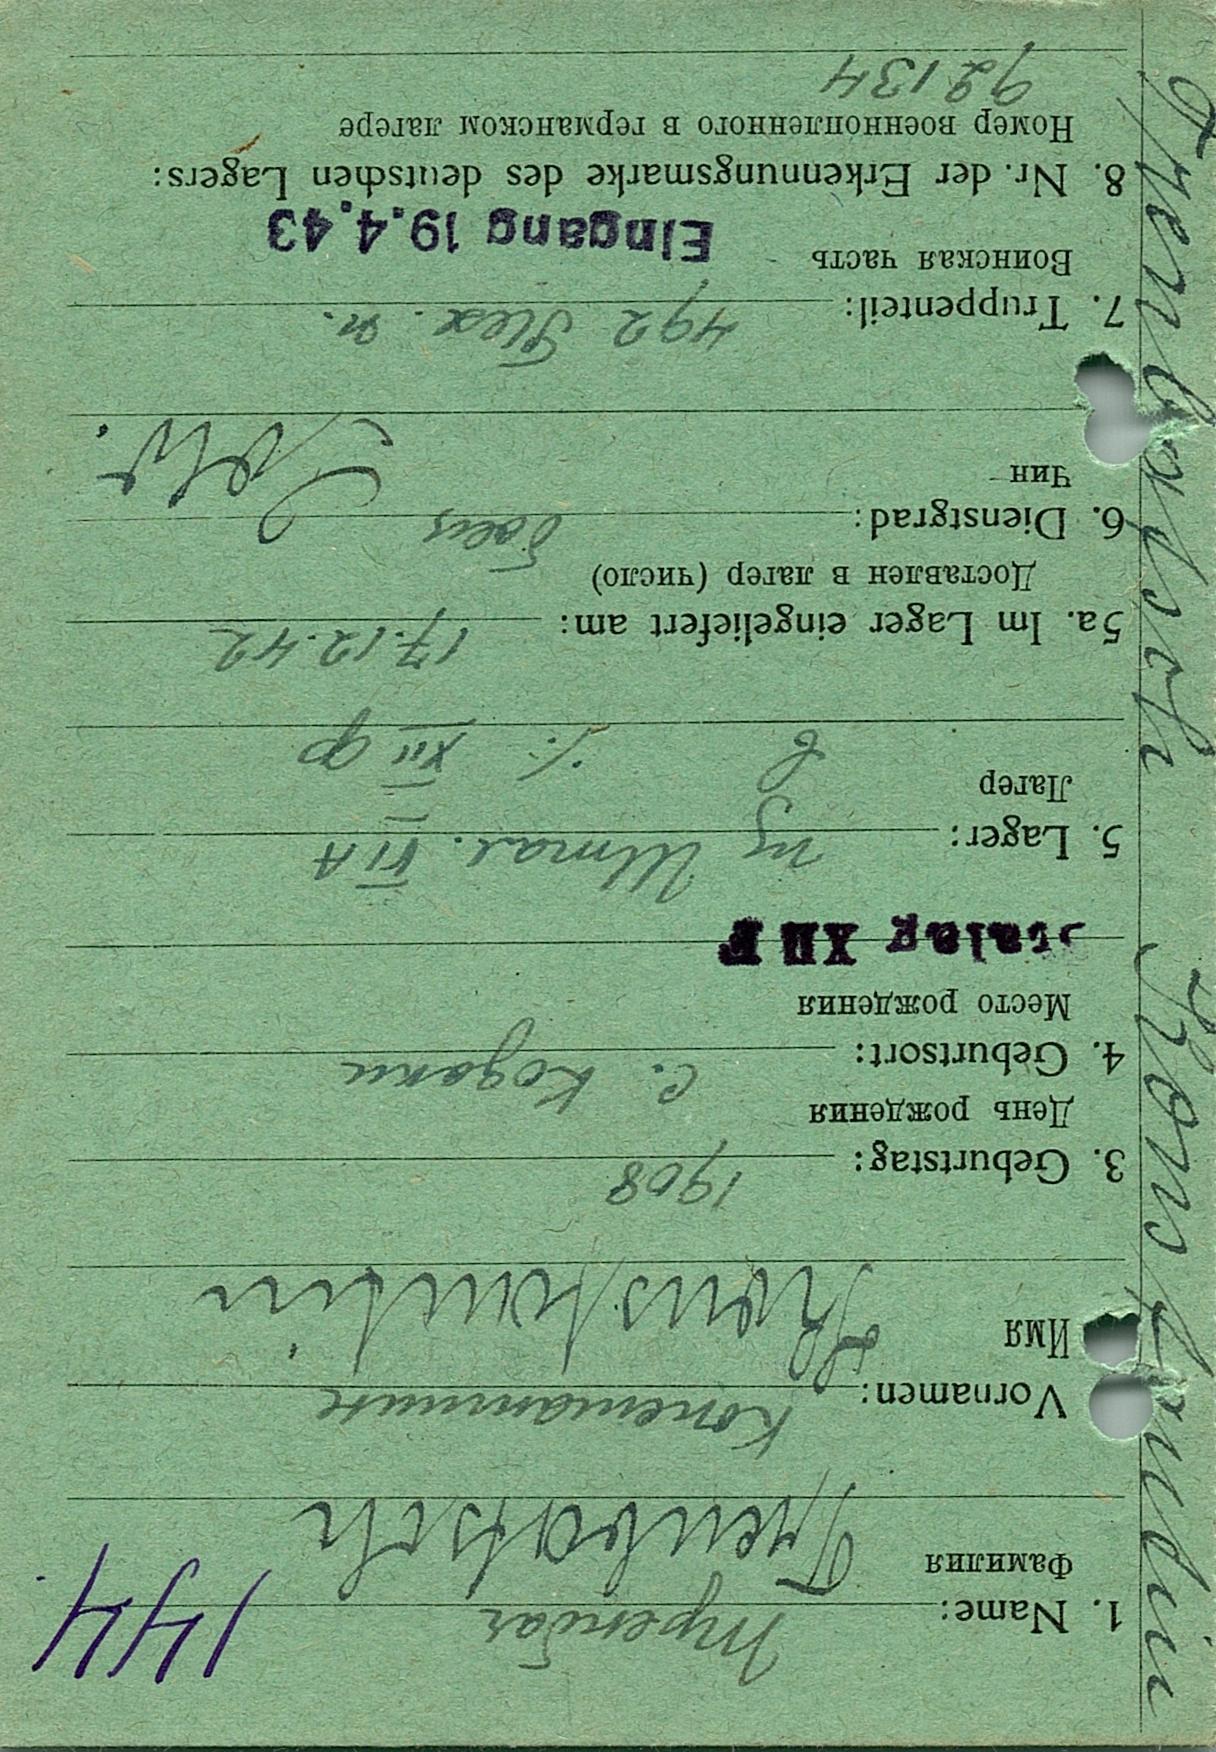 144
1. Name: Трембач
Фамилия
Trembatsch
Vornamen: Константин
Имя
Konstantin
3. Geburtstag: 1908
День рождения
4. Geburtsort: с. Кодаки
Место рождения
Stalag XII F
5. Lager: из Штал. VI A
Лагер
в XII ф
5a. Im Lager eingeliefert am: 17.12.42
Доставлен в лагер (число)
6. Dienstgrad: боец
Чин
Sold.
7. Truppenteil: 492
Воинская часть
Eingang 19.4.43
8. Nr. der Erkennungsmarke des deutschen Lagers:
Номер военнопленного в германском лагере
92134
Trembatsch Konstantin